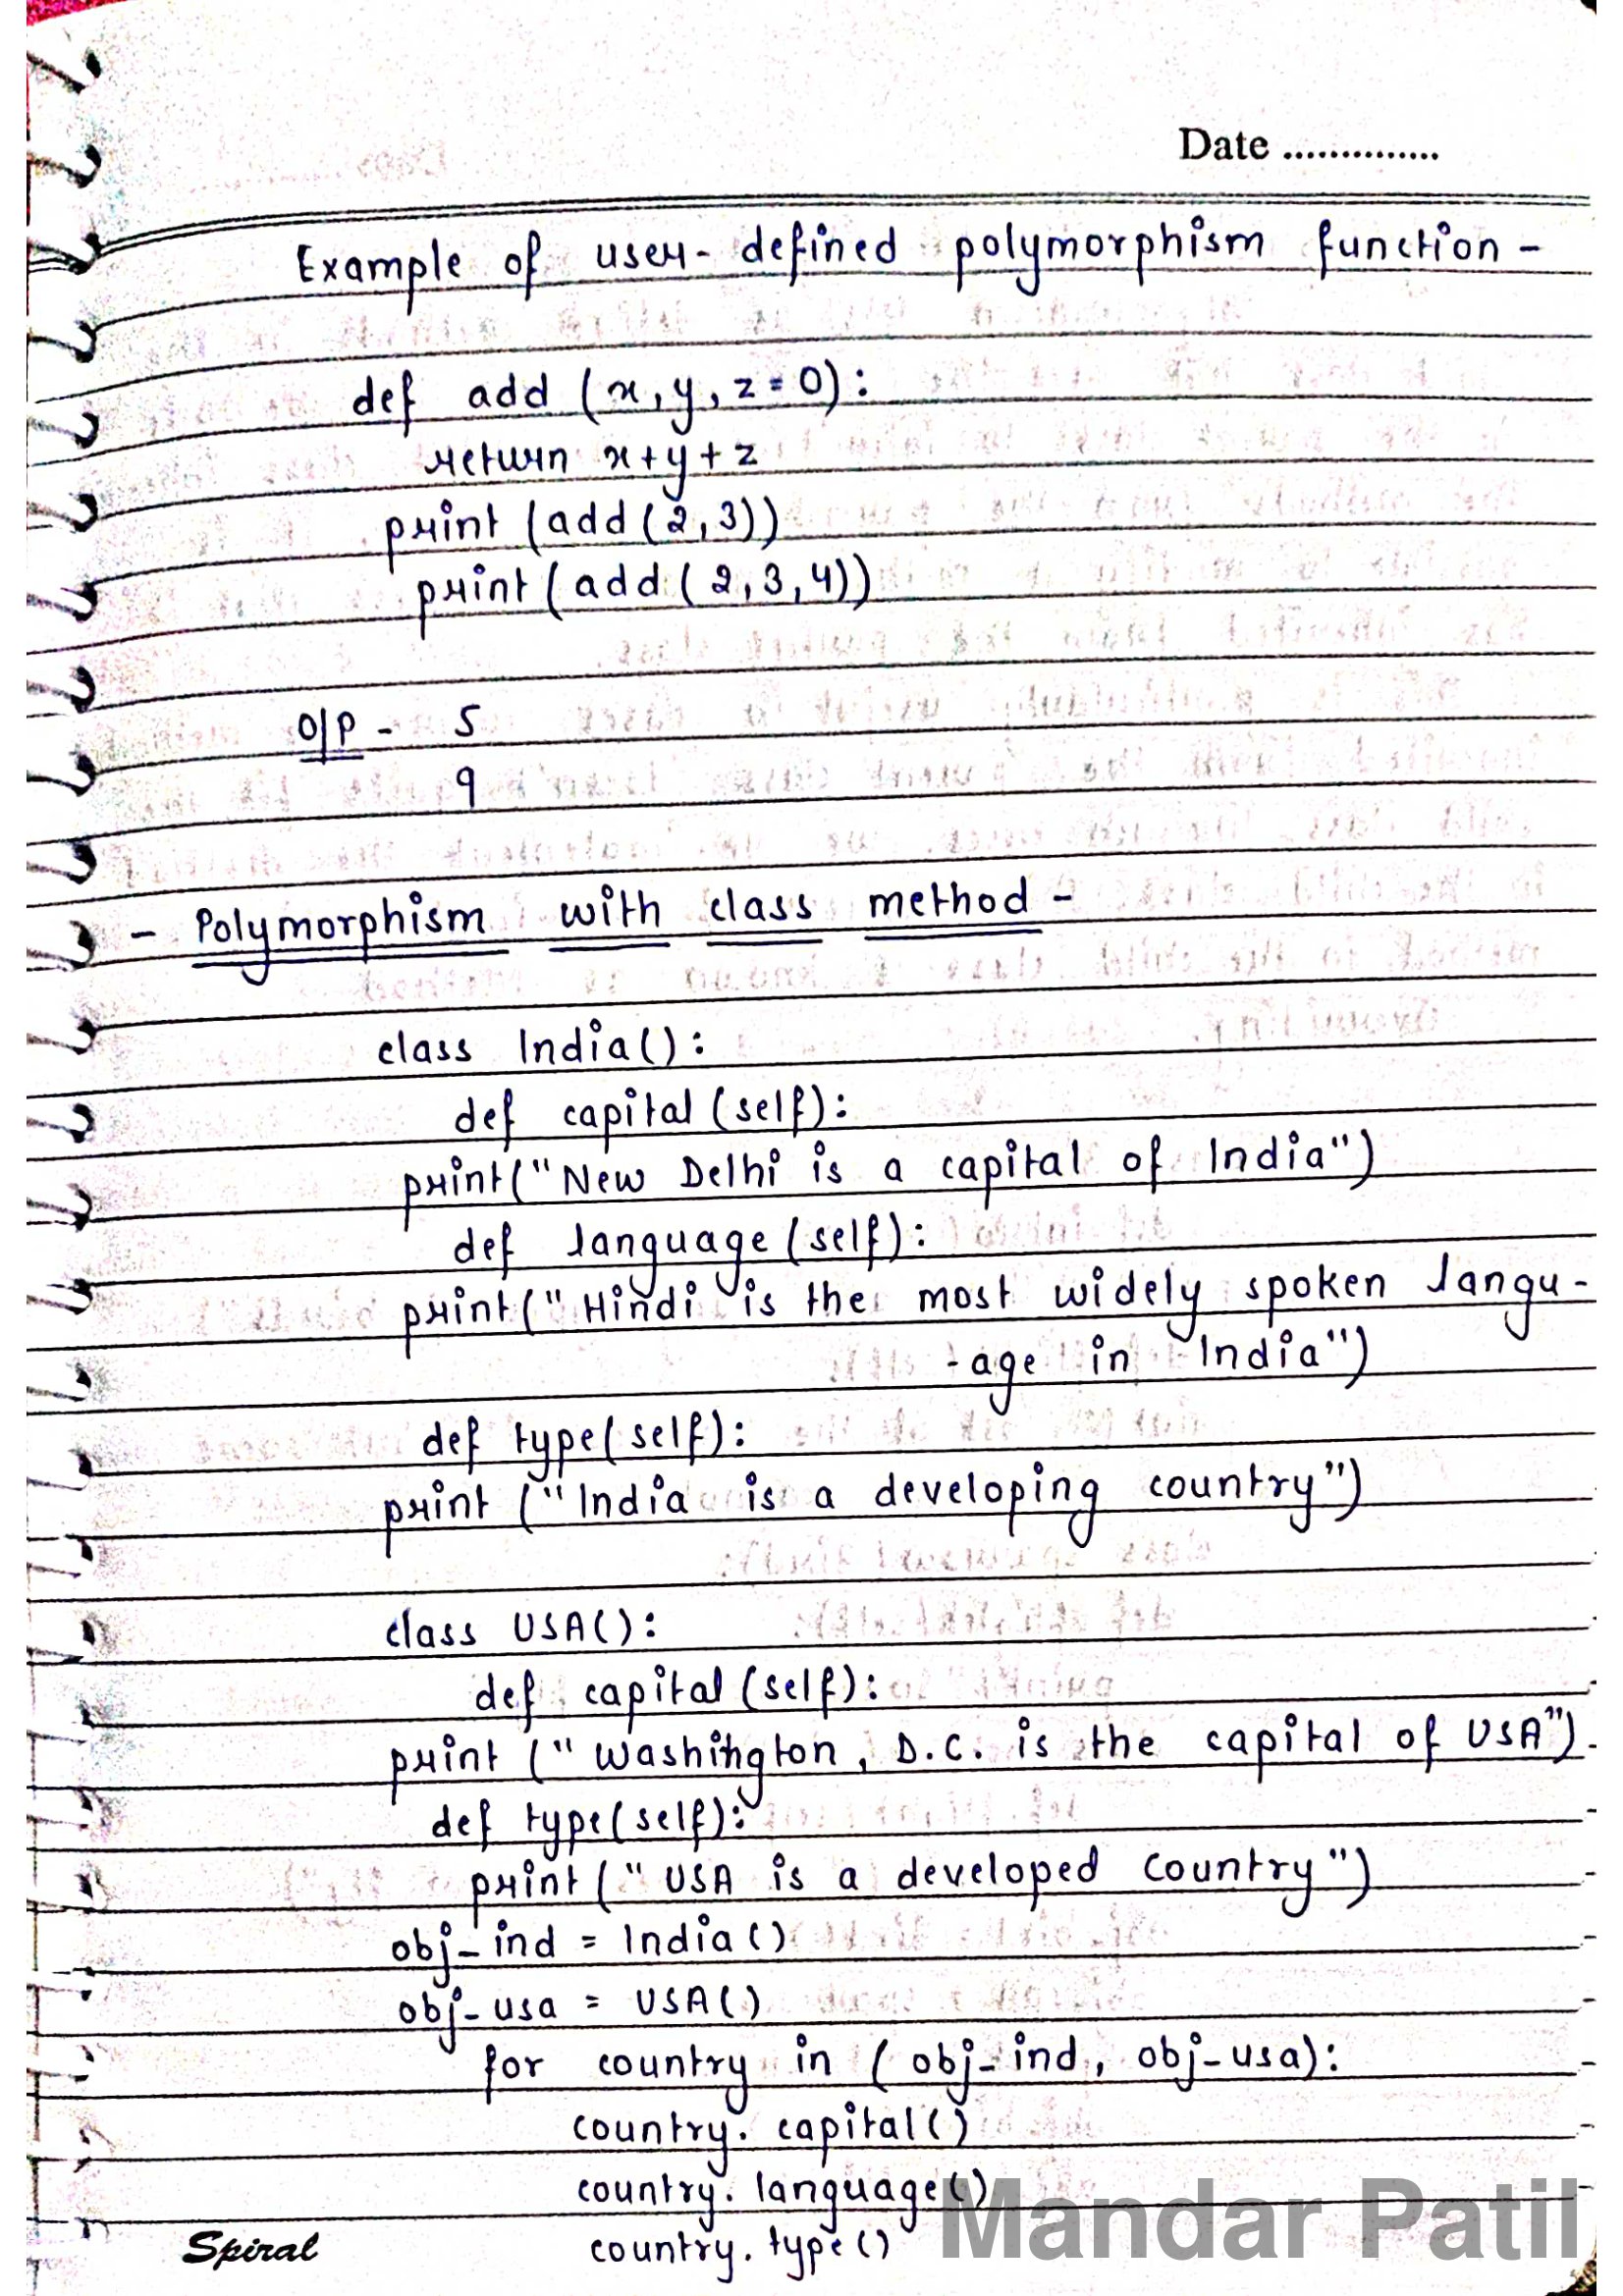 Date ..............
Example of user-defined polymorphism function -
def add (x, y, z = 0):
return x+y+z
print (add (2,3))
print (add (2,3,4))
O/P - 5
9
- Polymorphism with class method -
class India():
def capital (self):
print("New Delhi is a capital of India")
def language (self):
print(" Hindi is the most widely spoken langu-
-age in India")
def type(self):
print ("India is a developing country")
class USA():
def capital (self):
print (" Washington, D.C. is the capital of USA").
def type(self):
print (" USA is a developed country")
obj_ind = India ()
obj-usa = USA()
for country in ( obj_ind, obj-usa):
country. capital()
country. language()
country. type()
Spiral
Mandar Patil